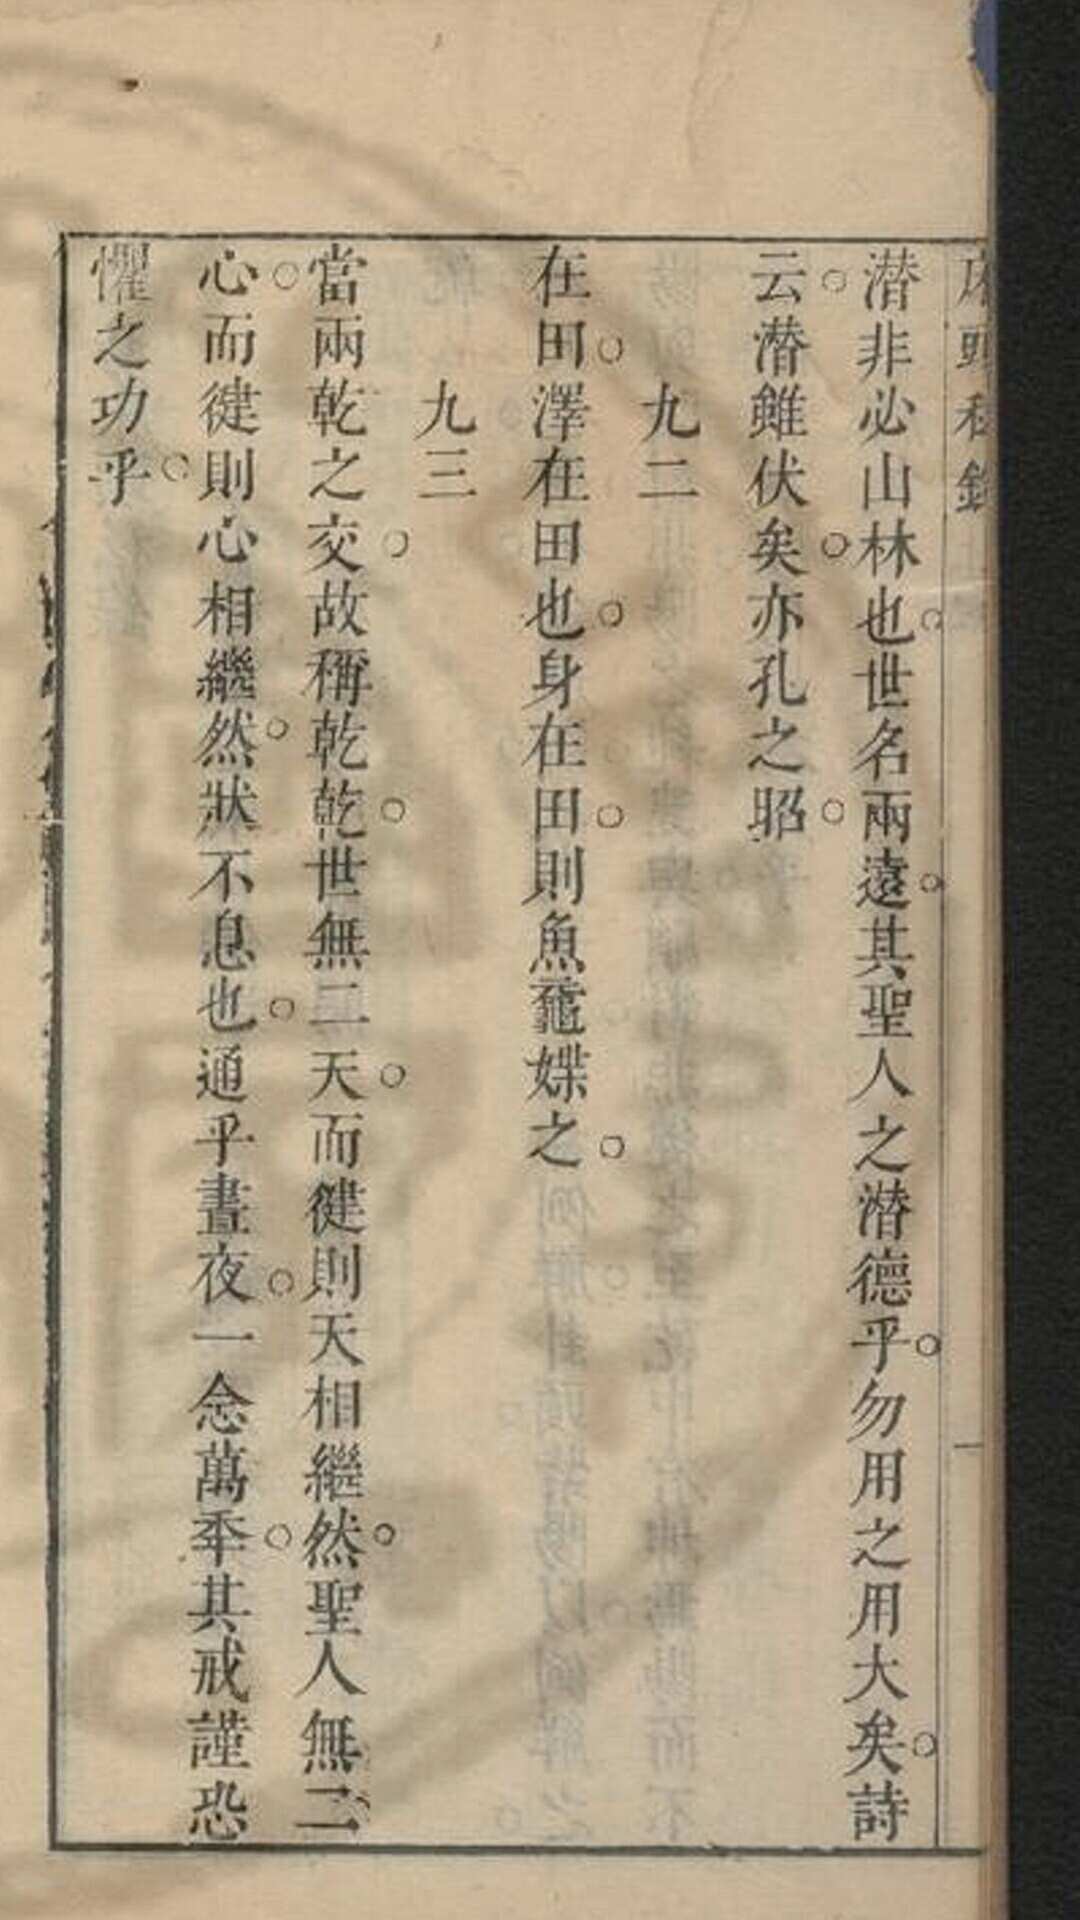 潛非必山林也世名兩遠其聖人之潛德乎勿用之用大矣詩
云潛雖伏矣亦孔之昭
九二
在田澤在田也身在田則魚鼈媟之
九三
當兩乾之交故稱乾乾世無二天而健則天相繼然聖人無二
心而健則心相繼然狀不息也通乎晝夜一念萬年其戒謹恐
懼之功乎